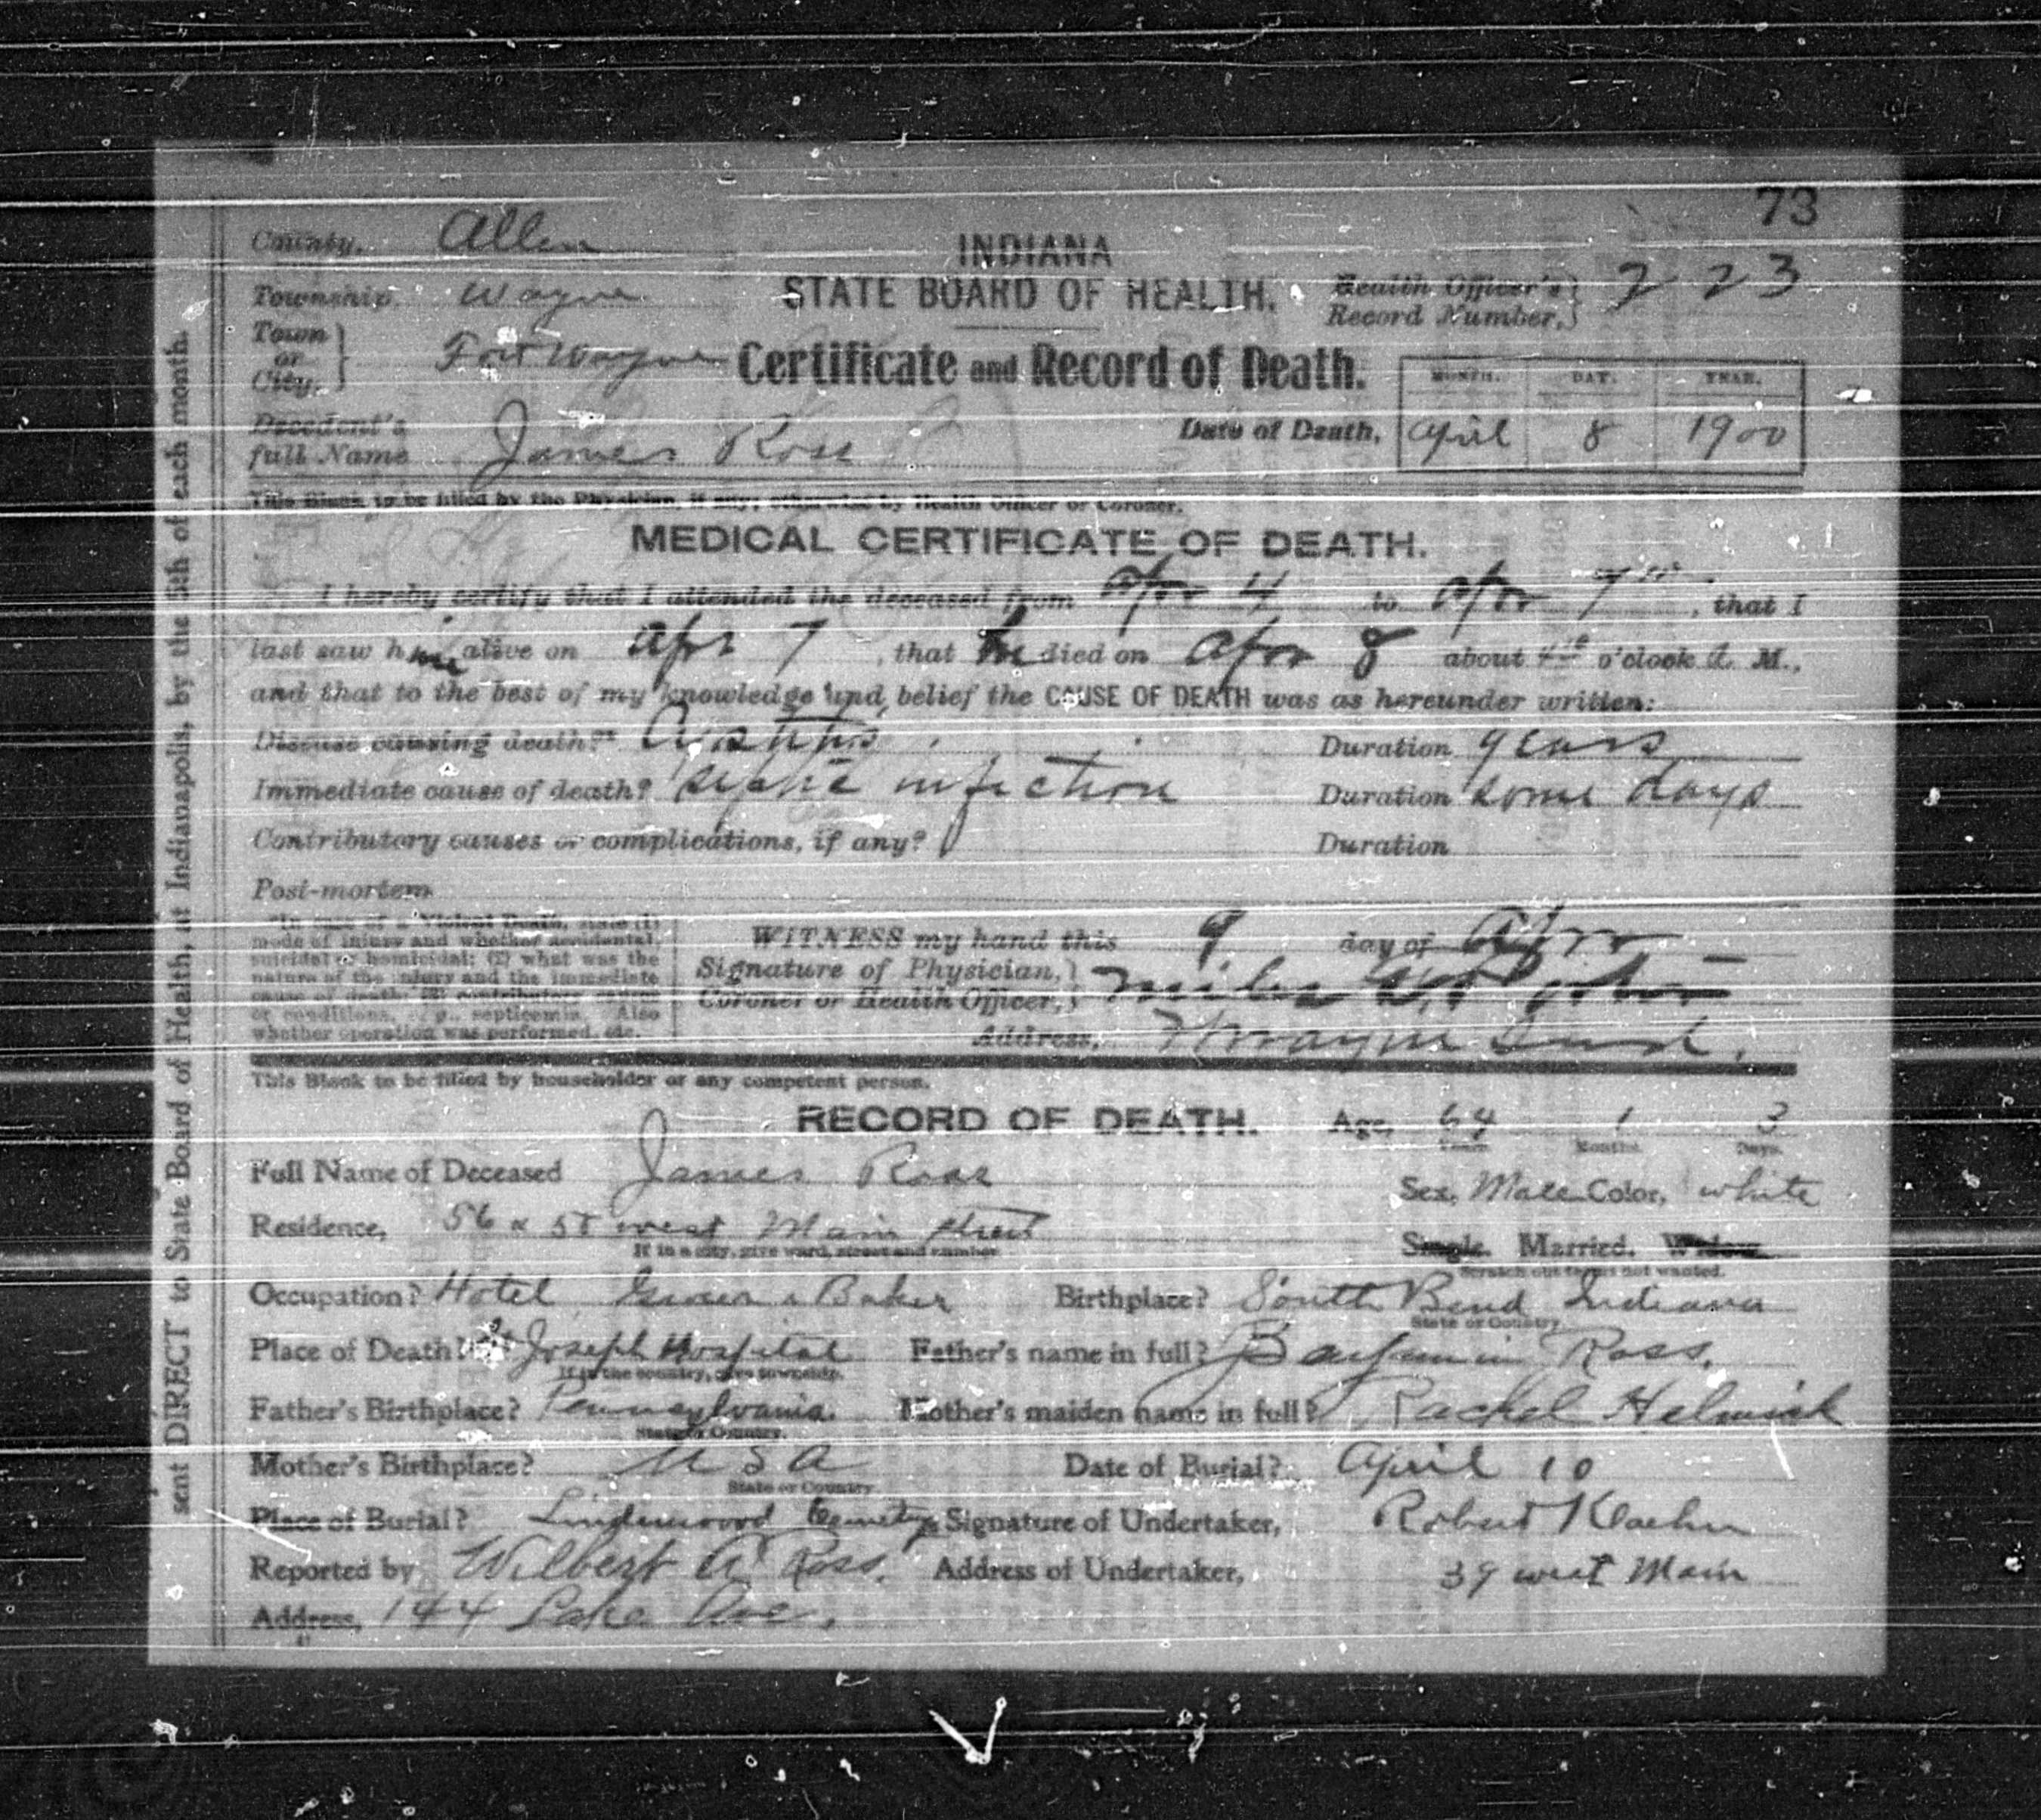 73
County, Allen
INDIANA
Township, Wayne
STATE BOARD OF HEALTH.
Health Officer's Record Number, 223
Town or City, Fort Wayne
Certificate and Record of Death.
MONTH. DAY. YEAR.
Decedent's full Name James Ross
Date of Death, April 8 1900
This Blank to be filled by the Physician, if any; otherwise by Health Officer or Coroner.
MEDICAL CERTIFICATE OF DEATH.
I hereby certify that I attended the deceased from Apr 4 to Apr 7, that I
last saw him alive on Apr 7, that he died on Apr 8 about o'clock A. M.,
and that to the best of my knowledge and belief the CAUSE OF DEATH was as hereunder written:
Disease causing death? Cystitis Duration years
Immediate cause of death? septic infection Duration some days
Contributory causes or complications, if any? Duration
Post-mortem
In case of a Violent Death, state (1)
mode of injury and whether accidental,
suicidal or homicidal; (2) what was the
nature of the injury and the immediate
cause of death; (3) contributory causes
or conditions, e. g., septicemia. Also
whether operation was performed, etc.
WITNESS my hand this 9 day of Apr
Signature of Physician, Coroner or Health Officer, Miles Porter
Address, Ft Wayne Ind.
This Blank to be filled by householder or any competent person.
RECORD OF DEATH. Age, 64 1 3
Years. Months. Days.
Full Name of Deceased James Ross
Sex, Male Color, white
Residence, 56 & 58 west Main street
If in a city, give ward, street and number
Single. Married. Widow.
Scratch out terms not wanted.
Occupation? Hotel & Baker Birthplace? South Bend Indiana
State or Country.
Place of Death? St Joseph Hospital Father's name in full? Benjamin Ross.
If in the country, give township.
Father's Birthplace? Pennsylvania. Mother's maiden name in full? Rachel Helmick
State or Country.
Mother's Birthplace? U S A Date of Burial? April 10
State or Country.
Place of Burial? Lindenwood Cemetery Signature of Undertaker, Robert Klaehn
Reported by Wilbert A Ross. Address of Undertaker, 39 west Main
Address, 144 Lake Ave.
sent DIRECT to State Board of Health, at Indianapolis, by the 5th of each month.